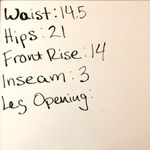 Waist: 14.5
Hips: 21
Front Rise: 14
Inseam: 3
Leg Opening: